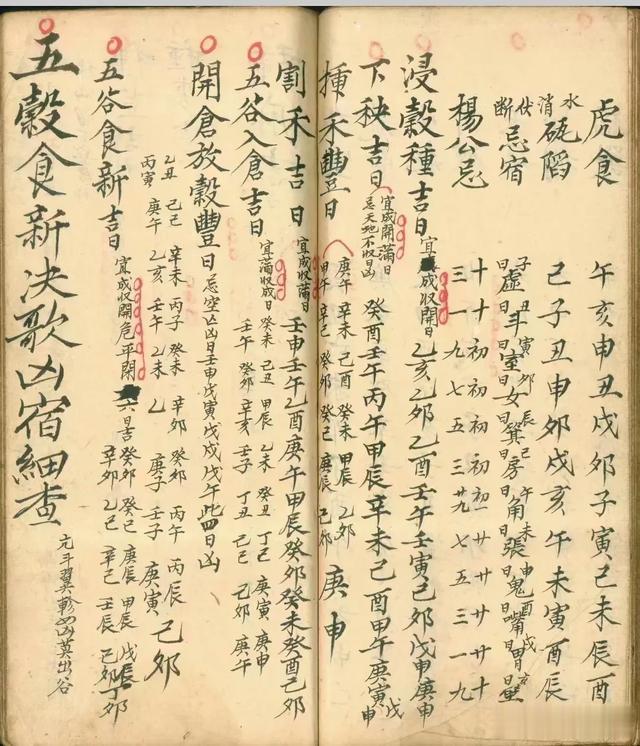 虎食 午亥申丑戌卯子寅巳未辰酉
水消砙陷 巳子丑申卯戌亥午未寅酉辰
伏断忌宿 子日虛丑日斗寅日室卯日女辰日箕巳日房午日角未日張申日鬼酉日嘴戌日胃亥日壁
楊公忌 十三十一初九初七初五初三初一廿九廿七廿五廿三廿一十九
浸穀種吉日 宜成收開日 乙亥乙卯乙酉壬午壬寅己卯戊申庚申
下秧吉日 宜成開滿日 忌天地不收日凶 癸酉壬午丙午甲辰辛未己酉甲午庚寅戊申
揷禾豐日 庚午辛未己酉癸未甲辰乙卯
甲午辛巳癸卯癸巳庚辰己卯 庚申
割禾吉日 宜成收滿日 壬申壬午乙酉庚午甲辰癸卯癸未癸酉己卯
五谷入倉吉日 宜滿收成日 癸未己丑甲辰乙未癸丑丁巳庚寅庚申
壬午癸卯辛亥壬子丁丑己巳己卯庚午
開倉放穀豐日 忌空亡凶日壬申戊寅戊戌戊午此四日凶
乙丑己巳辛未丙子癸未辛卯癸卯丙午丙辰己卯
丙寅庚午乙亥壬午乙未乙庚子壬子庚寅
五谷食新吉日 宜成收開危平閉
辛卯癸巳庚辰甲辰戊辰
辛卯乙巳辛巳壬辰己卯丁卯
五穀食新決歌凶宿細查
亢斗翼軫凶莫出谷